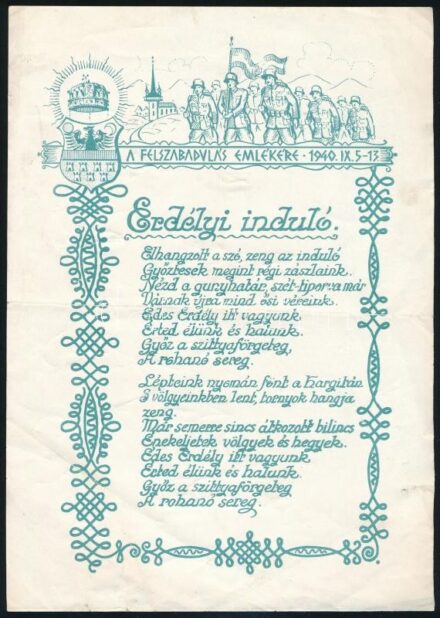 A FELSZABADULÁS EMLÉKÉRE · 1940. IX. 5-13
Erdélyi induló.
Elhangzott a szó, zeng az induló
Győztesek megint régi zászlaink.
Nézd a gunyhatár, szét-tiporva már
Várnak újra mind ősi véreink.
Édes Erdély itt vagyunk
Érted élünk és halunk.
Győz a szittyaförgeteg,
A rohanó sereg.
Lépteink nyomán fönt a Hargitán
S völgyeinkben lent, tornyok hangja
zeng.
Már semerre sincs átkozott bilincs
Énekeljetek völgyek és hegyek.
Édes Erdély itt vagyunk,
Érted élünk és halunk.
Győz a szittyaförgeteg
A rohanó sereg.